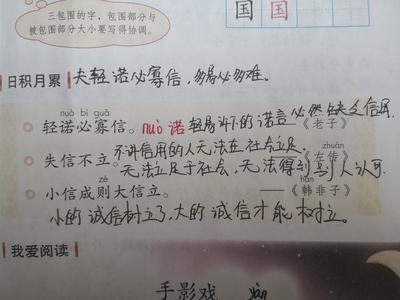 三包围的字，包围部分与
被包围部分大小要写得协调。
国 国
日积月累 夫轻诺必寡信，多易必多难。
nuò bì guǎ
轻诺必寡信。nuò 诺 轻易许下的诺言必然缺乏信用
——《老子》
不讲信用的人无法在社会立足
zhuàn
失信不立。——《左传》
无法立足于社会，无法得到与人认可.
zé hán
小信成则大信立。——《韩非子》
小的诚信树立了,大的诚信才能树立。
我爱阅读
手影戏